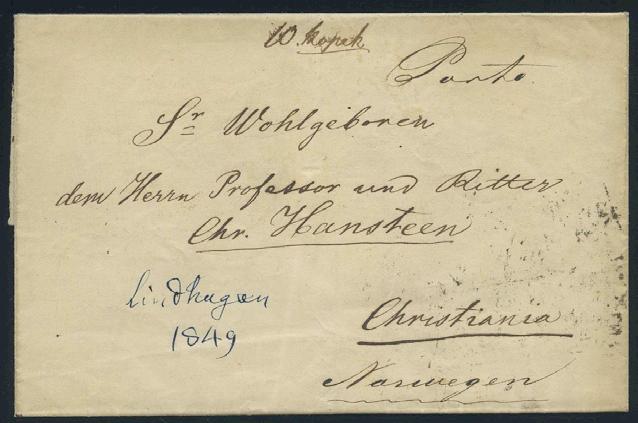 10. kopek
Porto.
Sr Wohlgeboren
dem Herrn Professor und Ritter
Chr. Hansteen
Lindhagen
1849
Christiania
Norwegen